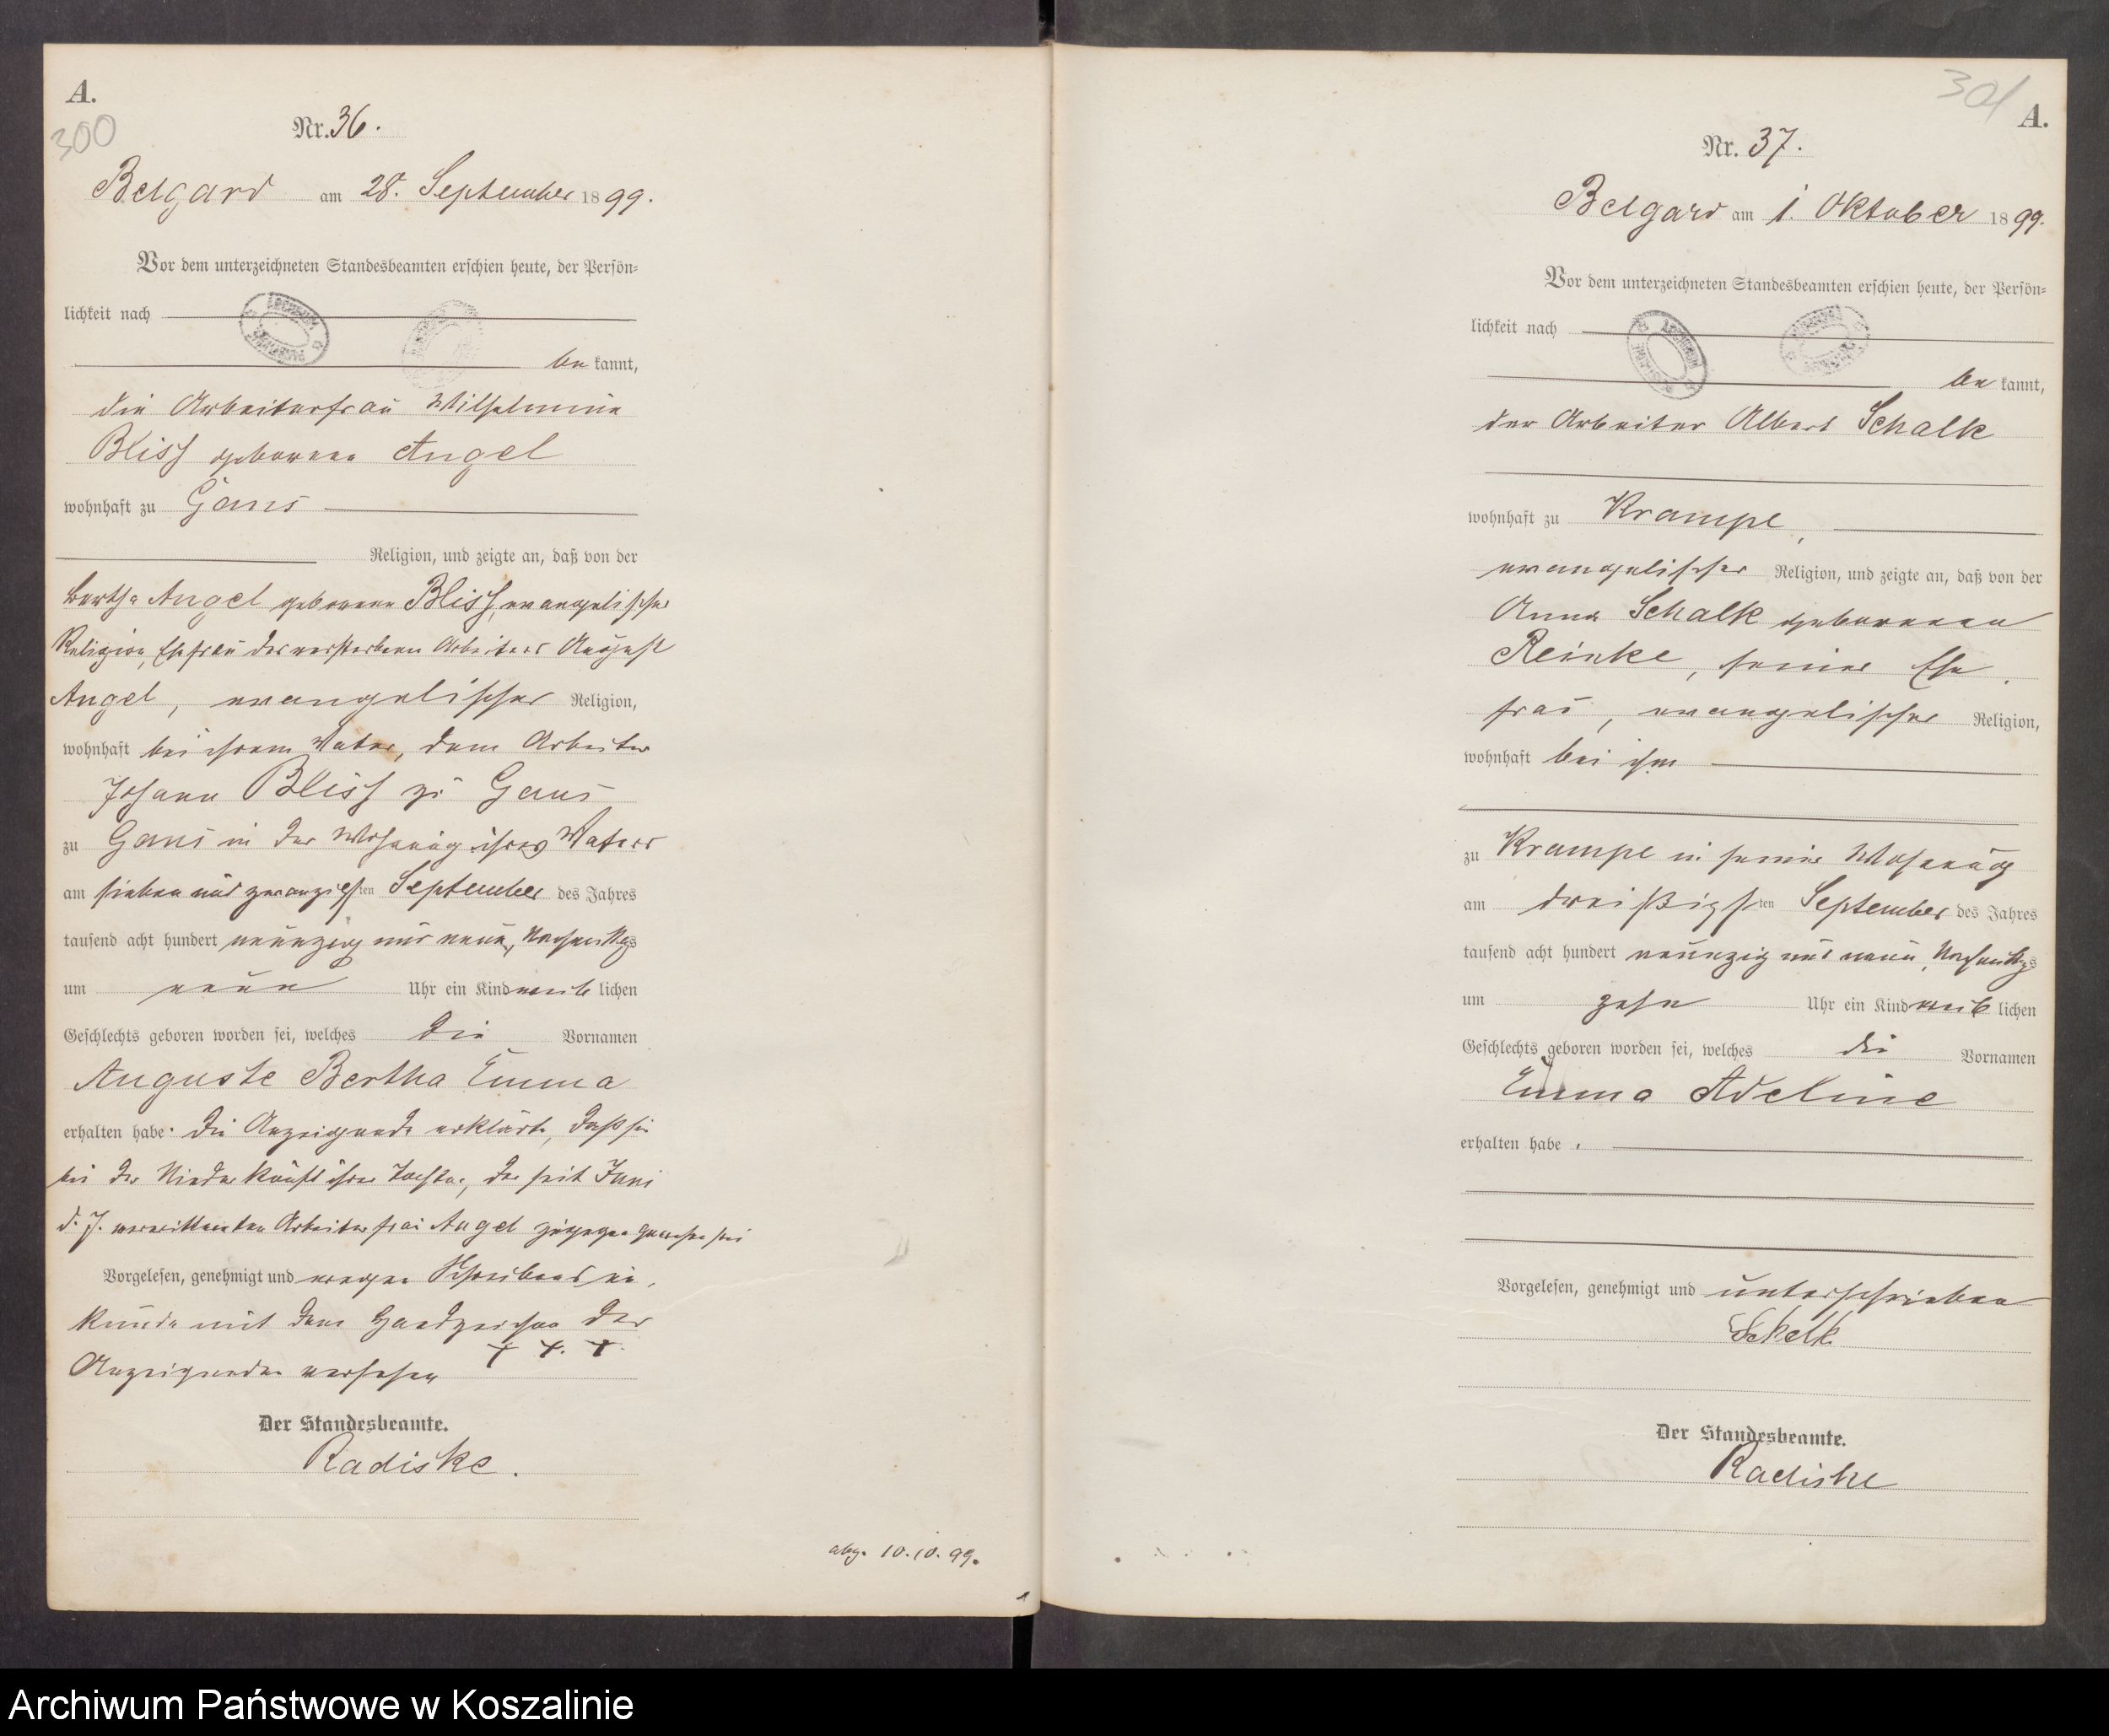 A.
300
Nr. 36.
Belgard am 28. September 1899.
Vor dem unterzeichneten Standesbeamten erschien heute, der Persön=
lichkeit nach
be kannt,
die Arbeiterfrau Wilhelmine
Bliss geborene Angel
wohnhaft zu Gans
Religion, und zeigte an, daß von der
Bertha Angel geborene Bliss, evangelischer
Religion, Ehefrau des verstorbenen Arbeiters August
Angel, evangelischer Religion,
wohnhaft bei ihrem Vater, dem Arbeiter
Johann Bliss zu Gans
zu Gans in der Wohnung ihres Vaters
am sieben und zwanzigsten September des Jahres
tausend acht hundert neunzig und neun, Nachmittags
um neun Uhr ein Kind weib lichen
Geschlechts geboren worden sei, welches die Vornamen
Auguste Bertha Emma
erhalten habe. Die Anzeigende erklärte, daß sie
bei der Niederkunft ihrer Tochter, der seit Juni
d. J. verwittweten Arbeiterfrau Angel zugegen gewesen sei
Vorgelesen, genehmigt und wegen Schreibensun-
kunde mit dem Handzeichen der
Anzeigenden versehen
+ +. +.
Der Standesbeamte.
Radiske.
abg. 10.10.99.
301
A.
Nr. 37.
Belgard am 1. Oktober 1899.
Vor dem unterzeichneten Standesbeamten erschien heute, der Persön=
lichkeit nach
be kannt,
der Arbeiter Albert Schalk
wohnhaft zu Krampe,
evangelischer Religion, und zeigte an, daß von der
Anna Schalk geborenen
Reinke, seiner Ehe-
frau, evangelischer Religion,
wohnhaft bei ihm
zu Krampe in seiner Wohnung
am dreißigsten September des Jahres
tausend acht hundert neunzig und neun, Nachmittags
um zehn Uhr ein Kind weib lichen
Geschlechts geboren worden sei, welches die Vornamen
Emma Adeline
erhalten habe.
Vorgelesen, genehmigt und unterschrieben
Schalk
Der Standesbeamte.
Radiske
Archiwum Państwowe w Koszalinie